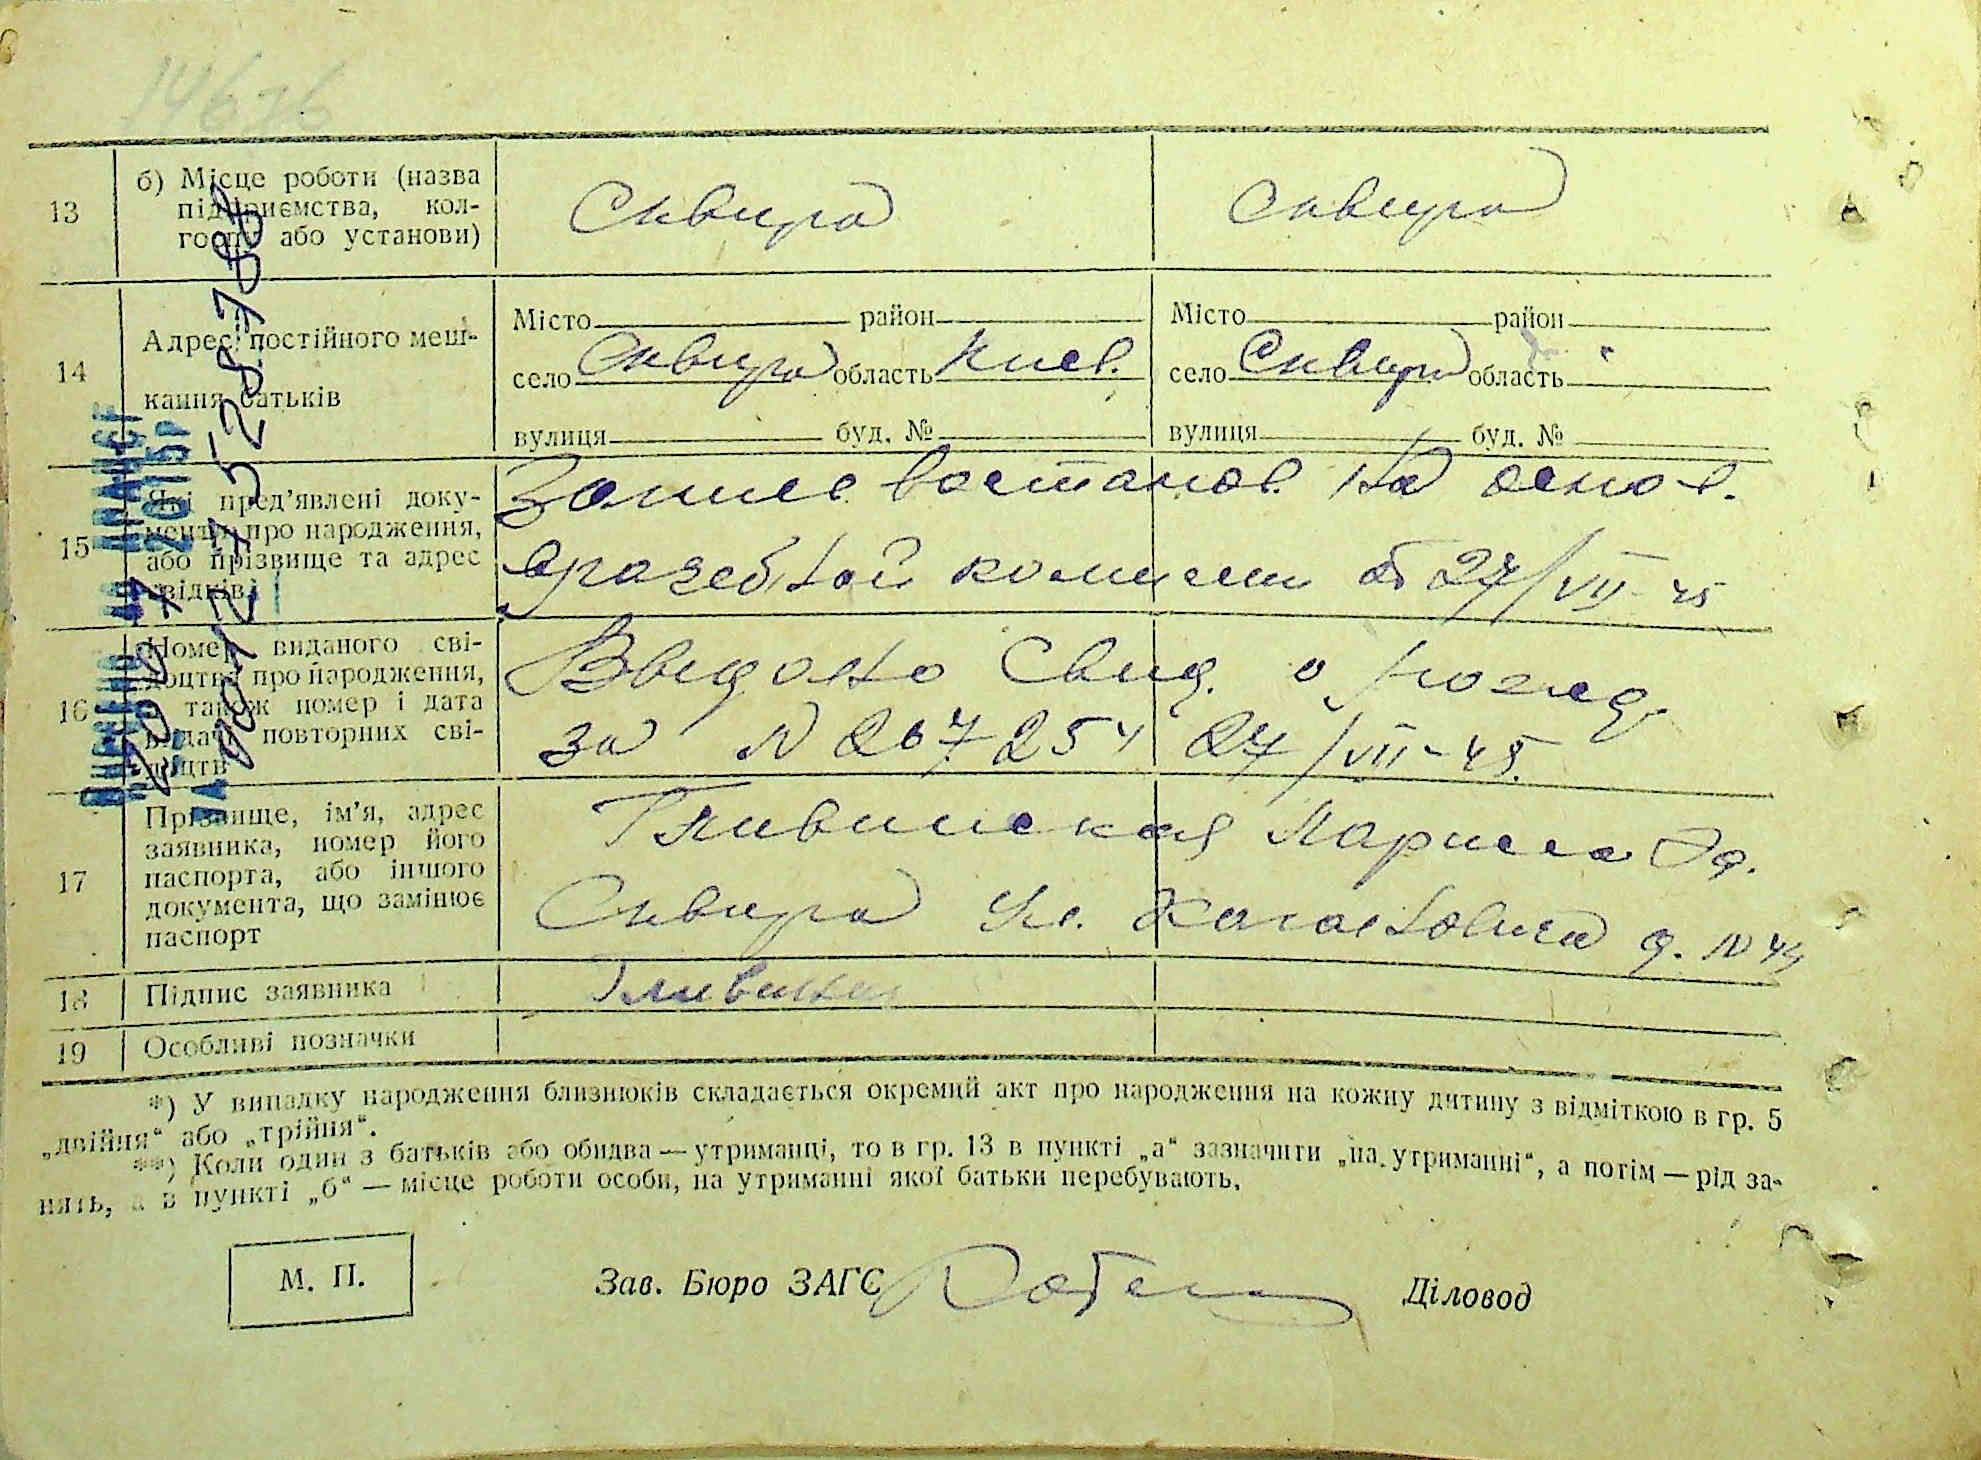 14676
13
б) Місце роботи (назва
підприємства, кол-
госпу або установи)
Сквира
Сквира
14
Адрес постійного меш-
кання батьків
Місто район
село Сквира область Киев.
вулиця буд. №
Місто район
село Сквира область "
вулиця буд. №
15
Які пред'явлені доку-
менти про народження,
або прізвище та адрес
свідків
Запись востанов. на основ.
врачебной комисии от 27/VII-45
16
Номер виданого сві-
доцтва про народження,
а також номер і дата
видачі повторних сві-
доцтв
Выдано Свид. о рожд.
за N 267254 27/VII-45.
17
Прізвище, ім'я, адрес
заявника, номер його
паспорта, або іншого
документа, що замінює
паспорт
Гливинская Лариса
Сквира Ул. д. N
18
Підпис заявника
19
Особливі позначки
*) У випадку народження близнюків складається окремий акт про народження на кожну дитину з відміткою в гр. 5
„двійня“ або „трійня“.
**) Коли один з батьків або обидва — утриманці, то в гр. 13 в пункті „а“ зазначити „на утриманні“, а потім — рід за-
нять, а в пункті „б“ — місце роботи особи, на утриманні якої батьки перебувають.
М. П.
Зав. Бюро ЗАГС
Діловод